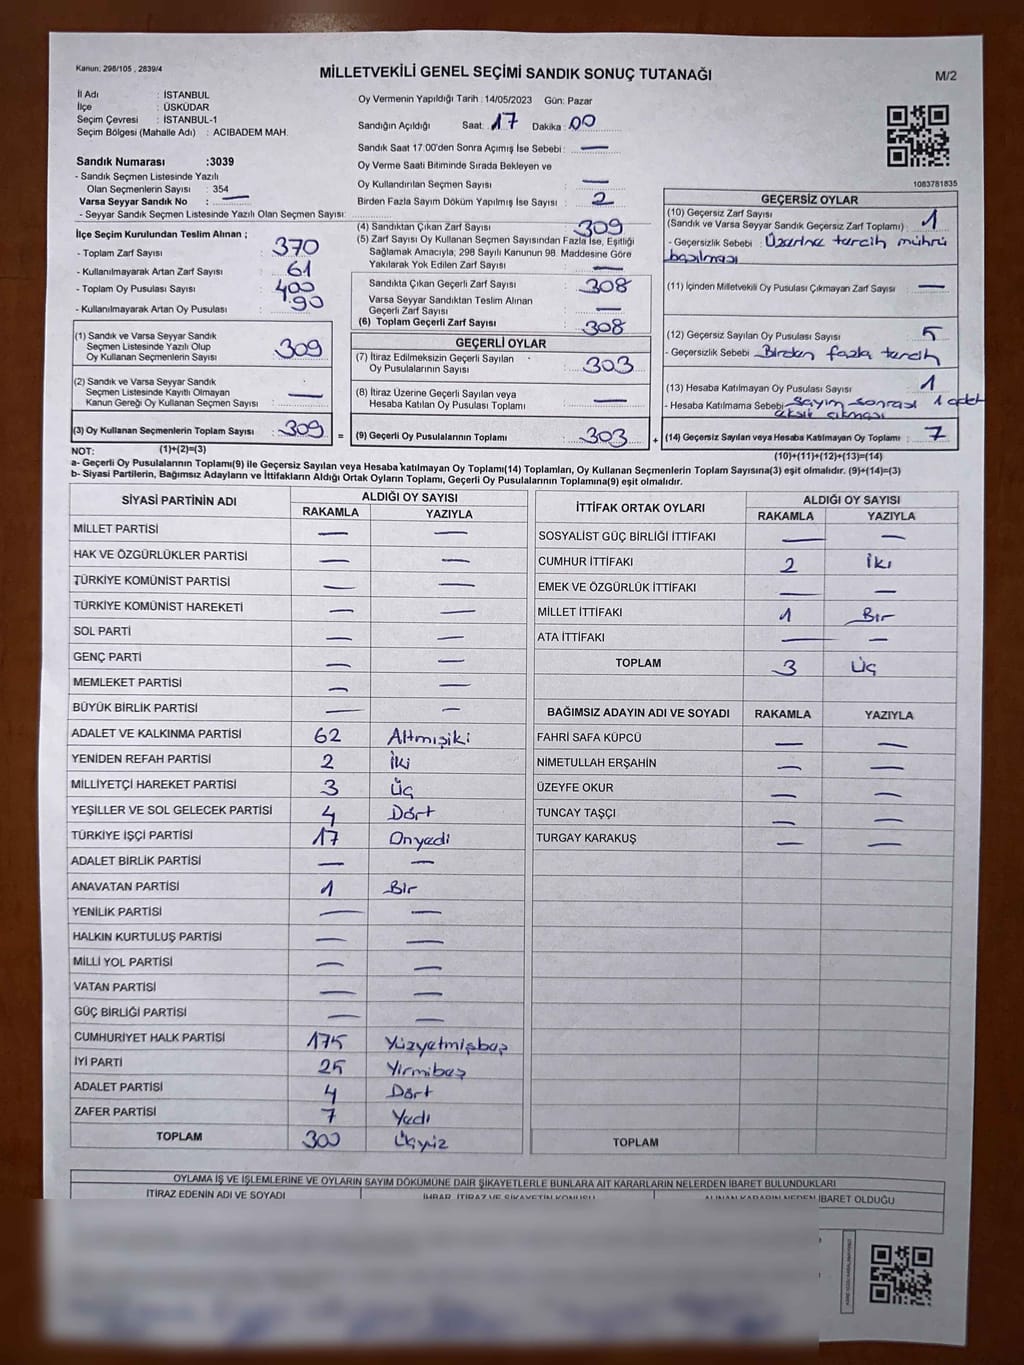 Kanun, 298/105 , 2839/4
MİLLETVEKİLİ GENEL SEÇİMİ SANDIK SONUÇ TUTANAĞI
M/2
İl Adı : İSTANBUL
İlçe : ÜSKÜDAR
Seçim Çevresi : İSTANBUL-1
Seçim Bölgesi (Mahalle Adı) : ACIBADEM MAH.
Oy Vermenin Yapıldığı Tarih : 14/05/2023 Gün: Pazar
Sandığın Açıldığı Saat: 17 Dakika : 00
Sandık Saat 17.00'den Sonra Açımış İse Sebebi : —
Oy Verme Saati Bitiminde Sırada Bekleyen ve
Oy Kullandırılan Seçmen Sayısı : —
Birden Fazla Sayım Döküm Yapılmış İse Sayısı : 2
1083781835
Sandık Numarası :3039
- Sandık Seçmen Listesinde Yazılı
Olan Seçmenlerin Sayısı : 354
Varsa Seyyar Sandık No : —
- Seyyar Sandık Seçmen Listesinde Yazılı Olan Seçmen Sayısı:
İlçe Seçim Kurulundan Teslim Alınan ;
- Toplam Zarf Sayısı : 370
- Kullanılmayarak Artan Zarf Sayısı : 61
- Toplam Oy Pusulası Sayısı : 400
- Kullanılmayarak Artan Oy Pusulası : 90
(1) Sandık ve Varsa Seyyar Sandık
Seçmen Listesinde Yazılı Olup
Oy Kullanan Seçmenlerin Sayısı : 309
(2) Sandık ve Varsa Seyyar Sandık
Seçmen Listesinde Kayıtlı Olmayan
Kanun Gereği Oy Kullanan Seçmen Sayısı : —
(3) Oy Kullanan Seçmenlerin Toplam Sayısı : 309 =
(1)+(2)=(3)
(4) Sandıktan Çıkan Zarf Sayısı : 309
(5) Zarf Sayısı Oy Kullanan Seçmen Sayısından Fazla İse, Eşitliği
Sağlamak Amacıyla, 298 Sayılı Kanunun 98. Maddesine Göre
Yakılarak Yok Edilen Zarf Sayısı : —
Sandıkta Çıkan Geçerli Zarf Sayısı : 308
Varsa Seyyar Sandıktan Teslim Alınan
Geçerli Zarf Sayısı : —
(6) Toplam Geçerli Zarf Sayısı : 308
GEÇERLİ OYLAR
(7) İtiraz Edilmeksizin Geçerli Sayılan
Oy Pusulalarının Sayısı : 303
(8) İtiraz Üzerine Geçerli Sayılan veya
Hesaba Katılan Oy Pusulası Toplamı : —
(9) Geçerli Oy Pusulalarının Toplamı : 303 +
GEÇERSİZ OYLAR
(10) Geçersiz Zarf Sayısı
(Sandık ve Varsa Seyyar Sandık Geçersiz Zarf Toplamı) : 1
- Geçersizlik Sebebi : Üzerine tercih mührü
basılması
(11) İçinden Milletvekili Oy Pusulası Çıkmayan Zarf Sayısı : —
(12) Geçersiz Sayılan Oy Pusulası Sayısı : 5
- Geçersizlik Sebebi : Birden fazla tercih
(13) Hesaba Katılmayan Oy Pusulası Sayısı : 1
- Hesaba Katılmama Sebebi : Sayım sonrası 1 adet
eksik çıkması
(14) Geçersiz Sayılan veya Hesaba Katılmayan Oy Toplamı : 7
(10)+(11)+(12)+(13)=(14)
NOT:
a- Geçerli Oy Pusulalarının Toplamı(9) ile Geçersiz Sayılan veya Hesaba katılmayan Oy Toplamı(14) Toplamları, Oy Kullanan Seçmenlerin Toplam Sayısına(3) eşit olmalıdır. (9)+(14)=(3)
b- Siyasi Partilerin, Bağımsız Adayların ve İttifakların Aldığı Ortak Oyların Toplamı, Geçerli Oy Pusulalarının Toplamına(9) eşit olmalıdır.
SİYASİ PARTİNİN ADI ALDIĞI OY SAYISI
RAKAMLA YAZIYLA
MİLLET PARTİSİ — —
HAK VE ÖZGÜRLÜKLER PARTİSİ — —
TÜRKİYE KOMÜNİST PARTİSİ — —
TÜRKİYE KOMÜNİST HAREKETİ — —
SOL PARTİ — —
GENÇ PARTİ — —
MEMLEKET PARTİSİ — —
BÜYÜK BİRLİK PARTİSİ — —
ADALET VE KALKINMA PARTİSİ 62 Altmışiki
YENİDEN REFAH PARTİSİ 2 İki
MİLLİYETÇİ HAREKET PARTİSİ 3 Üç
YEŞİLLER VE SOL GELECEK PARTİSİ 4 Dört
TÜRKİYE İŞÇİ PARTİSİ 17 Onyedi
ADALET BİRLİK PARTİSİ — —
ANAVATAN PARTİSİ 1 Bir
YENİLİK PARTİSİ — —
HALKIN KURTULUŞ PARTİSİ — —
MİLLİ YOL PARTİSİ — —
VATAN PARTİSİ — —
GÜÇ BİRLİĞİ PARTİSİ — —
CUMHURİYET HALK PARTİSİ 175 Yüzyetmişbeş
İYİ PARTİ 25 Yirmibeş
ADALET PARTİSİ 4 Dört
ZAFER PARTİSİ 7 Yedi
TOPLAM 300 Üçyüz
İTTİFAK ORTAK OYLARI ALDIĞI OY SAYISI
RAKAMLA YAZIYLA
SOSYALİST GÜÇ BİRLİĞİ İTTİFAKI — —
CUMHUR İTTİFAKI 2 İki
EMEK VE ÖZGÜRLÜK İTTİFAKI — —
MİLLET İTTİFAKI 1 Bir
ATA İTTİFAKI — —
TOPLAM 3 Üç
BAĞIMSIZ ADAYIN ADI VE SOYADI RAKAMLA YAZIYLA
FAHRİ SAFA KÜPCÜ — —
NİMETULLAH ERŞAHİN — —
ÜZEYFE OKUR — —
TUNCAY TAŞÇI — —
TURGAY KARAKUŞ — —
TOPLAM
OYLAMA İŞ VE İŞLEMLERİNE VE OYLARIN SAYIM DÖKÜMÜNE DAİR ŞİKAYETLERLE BUNLARA AİT KARARLARIN NELERDEN İBARET BULUNDUKLARI
İTİRAZ EDENİN ADI VE SOYADI İHBAR, İTİRAZ VE ŞİKAYETİN KONUSU ALINAN KARARIN NEDEN İBARET OLDUĞU